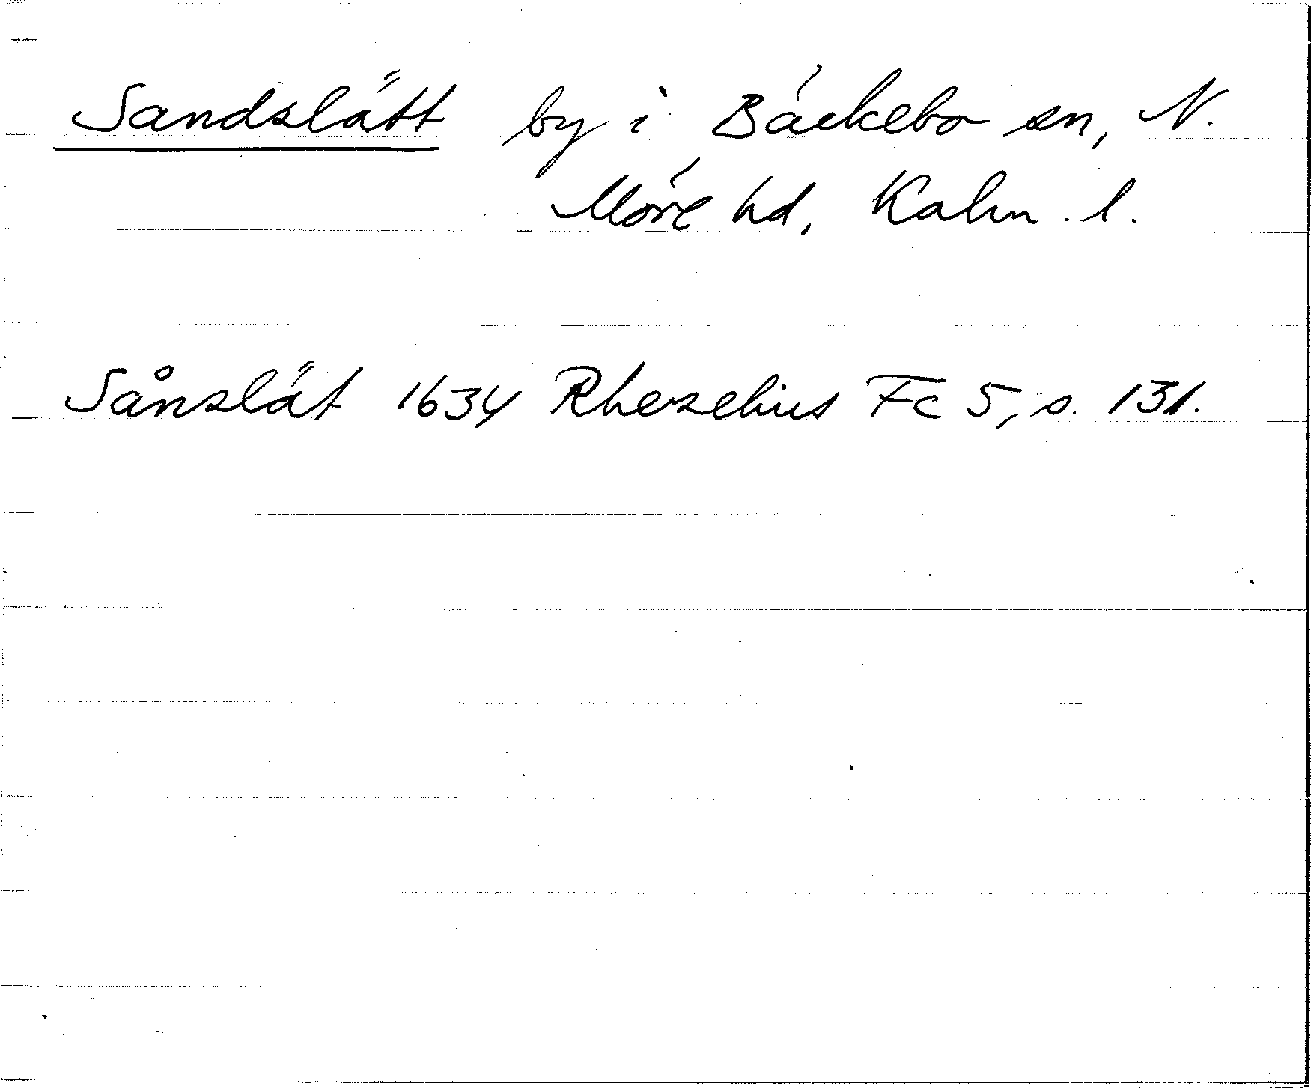 Sandslätt by i Bäckebo sn, N.
Möre hd, Kalm. l.
Sånslät 1634 Rhezelius Fc 5, s. 131.